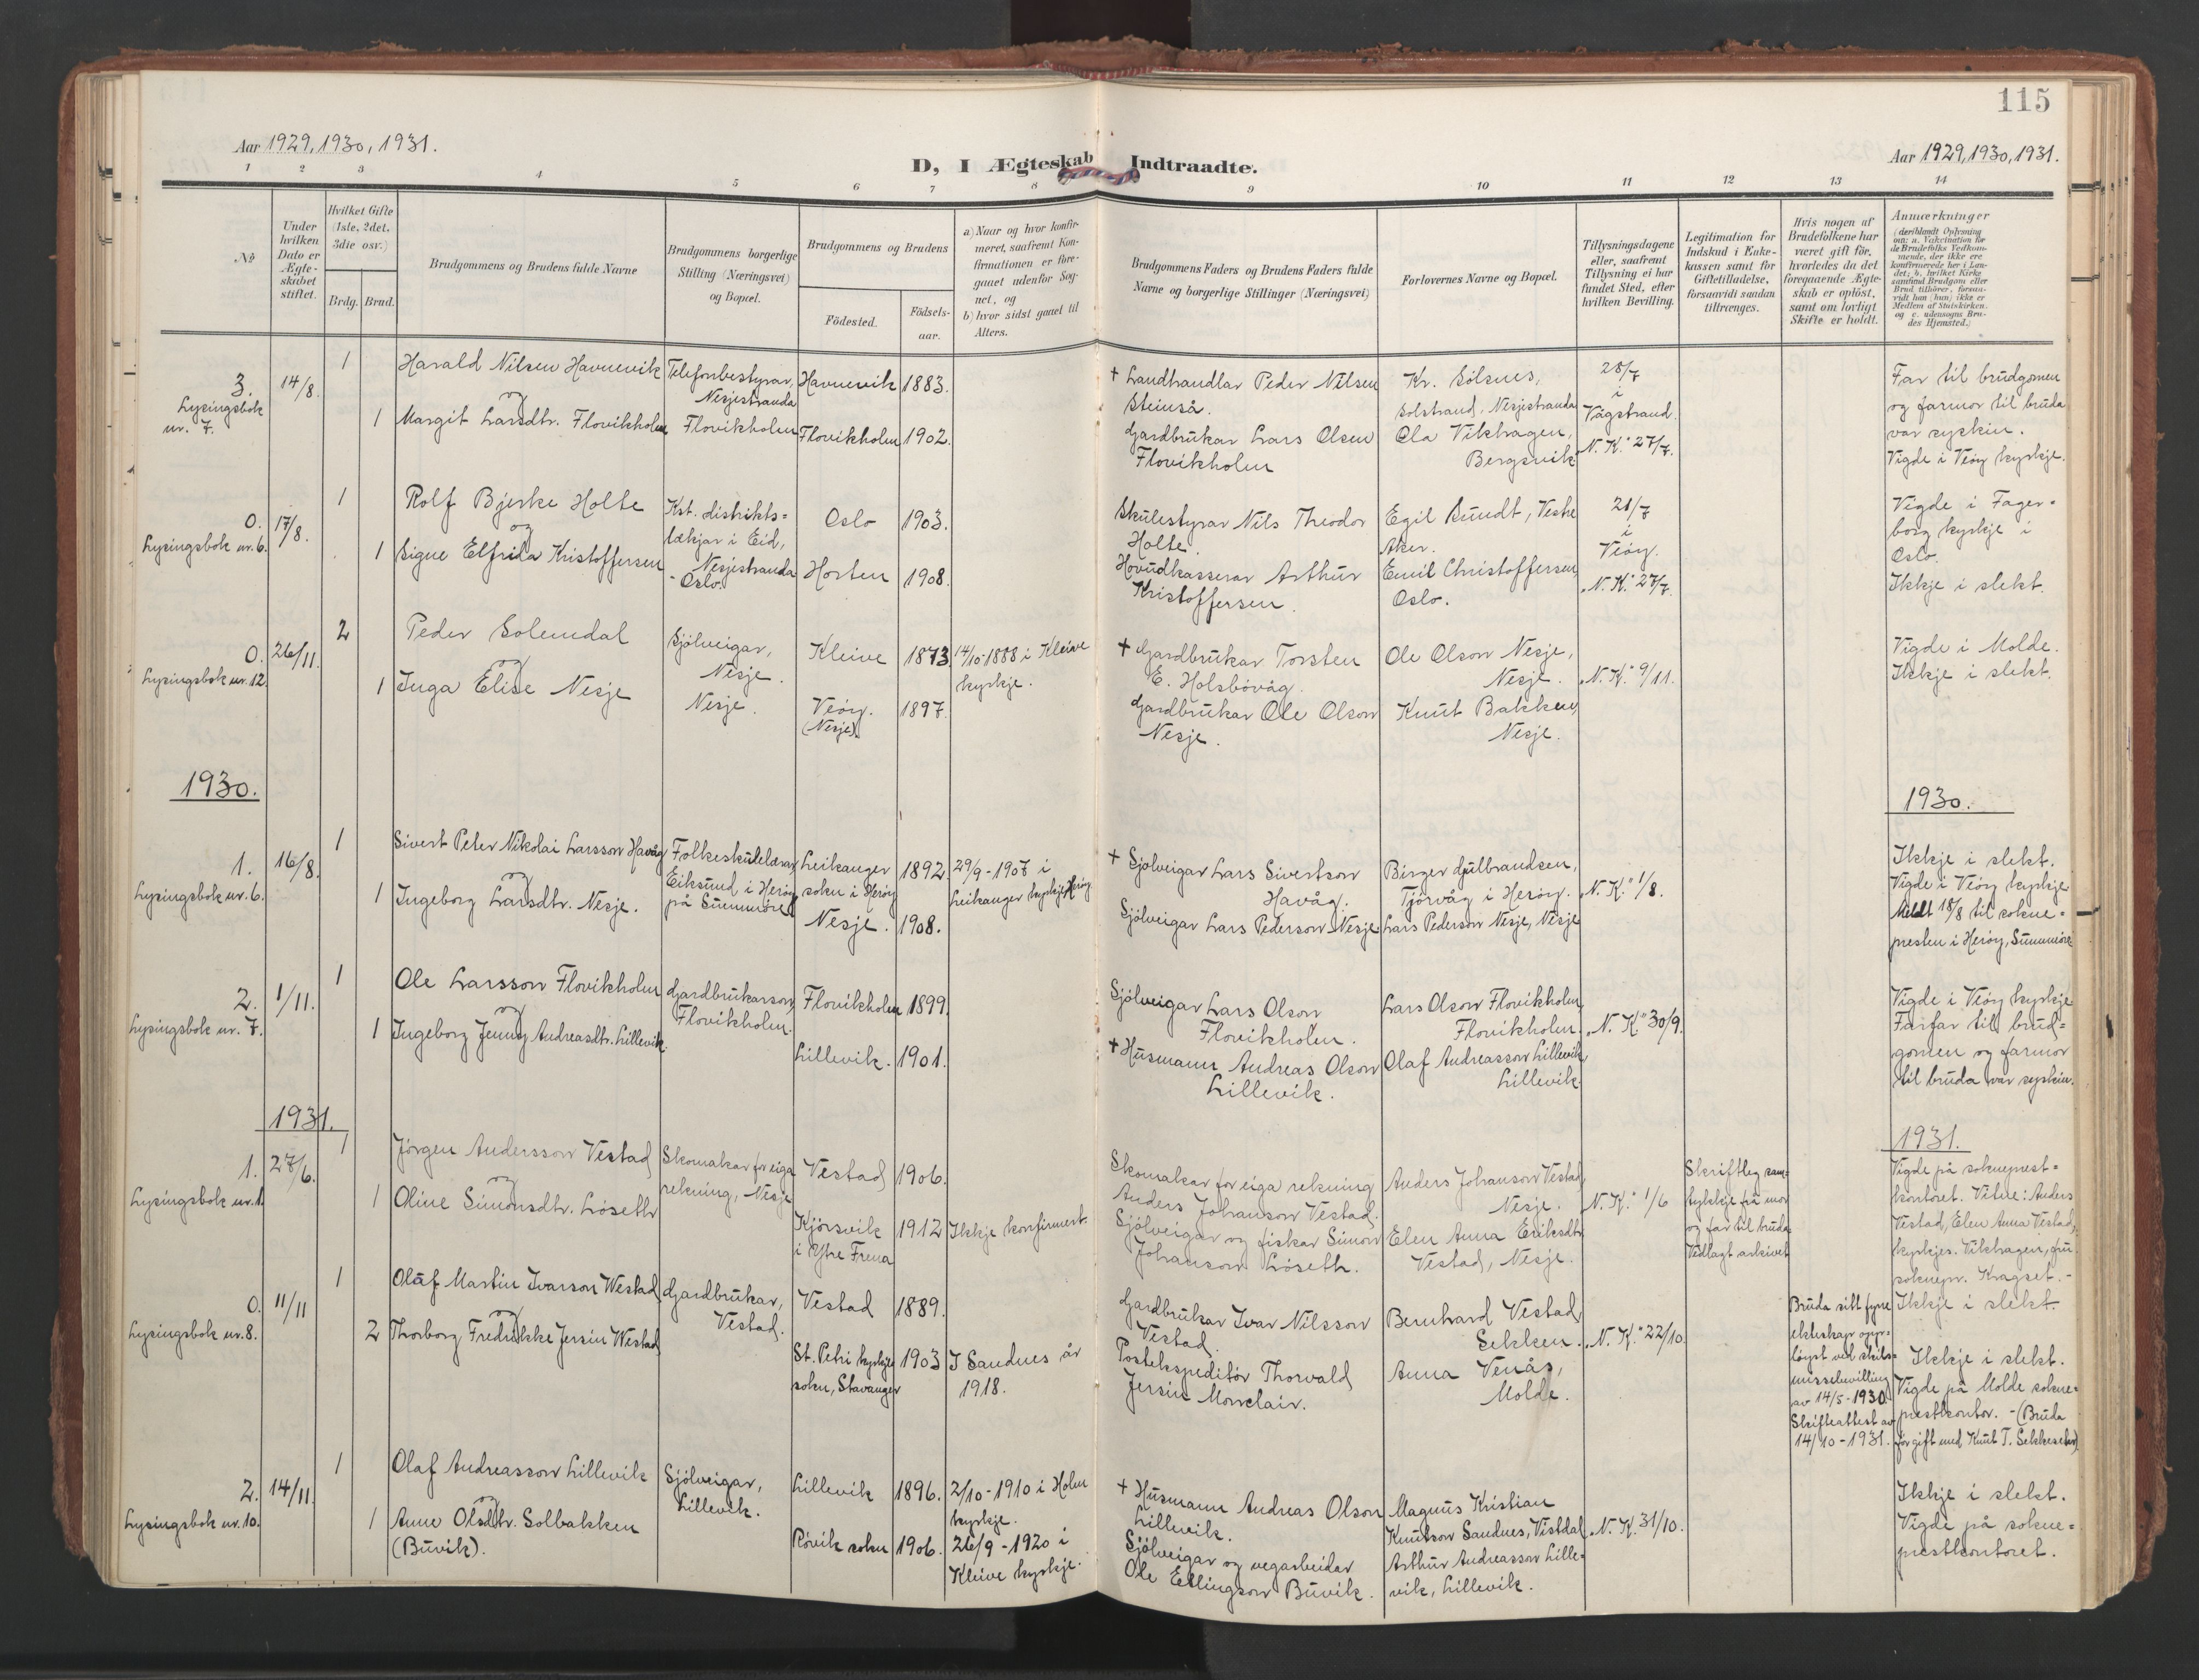 115
Aar 1929, 1930, 1931.
D, I Ægteskab Indtraadte.
Aar 1929, 1930, 1931.
1 2 3 4 5 6 7 8 9 10 11 12 13 14
No
Under hvilken Dato er Ægteskabet stiftet.
Hvilket Gifte (1ste, 2det, 3die osv.)
Brdg. Brud.
Brudgommens og Brudens fulde Navne
Brudgommens borgerlige Stilling (Næringsvei) og Bopæl.
Brudgommens og Brudens
Fødested.
Fødselsaar.
a) Naar og hvor konfirmeret, saafremt Konfirmationen er foregaaet udenfor Sognet, og
b) hvor sidst gaaet til Alters.
Brudgommens Faders og Brudens Faders fulde Navne og borgerlige Stillinger (Næringsvei)
Forlovernes Navne og Bopæl.
Tillysningsdagene eller, saafremt Tillysning ei har fundet Sted, efter hvilken Bevilling.
Legitimation for Indskud i Enkekassen samt for Giftetilladelse, forsaavidt saadan tiltrænges.
Hvis nogen af Brudefolkene har været gift før, hvorledes da det foregaaende Ægteskab er opløst, samt om lovligt Skifte er holdt.
Anmærkninger
(deriblandt Oplysning om: a. Vaksination for de Brudefolks Vedkommende, der ikke ere konfirmerede her i Landet; b. hvilket Kirkesamfund Brudgom eller Brud tilhører, forsaavidt han (hun) ikke er Medlem af Statskirken, og c. udensogns Brudes Hjemsted.)
3.
Lysingsbok nr. 7.
14/8
1
Harald Nilsen Havnevik
og
1
Margit Larsdtr. Flovikholm
Telefonbestyrar, Nesjestranda
Flovikholm
Havnevik 1883.
Flovikholm 1902.
† Landhandlar Peder Nilsen
Steinså.
Gardbrukar Lars Olsen
Flovikholm
Kr. Sølsnes,
Solstrand, Nesjestranda
Ola Vikhagen,
Bergsvik
28/7
i
Vågstrand.
"N. K." 27/7.
Far til brudgomen
og farmor til bruda
var syskin.
Vigde i Veøy kyrkje.
0.
Lysingsbok nr. 6.
17/8.
1
Rolf Bjerke Holte
og
1
Signe Elfrida Kristoffersen
Kst. distrikts=
lækjar i Eid,
Nesjestranda
- Oslo.
Oslo 1903.
Horten 1908.
Skulestyrar Nils Theodor
Holte.
Hovudkasserar Arthur
Kristoffersen.
Egil Sundt, Vestre
Aker.
Emil Christoffersen,
Oslo.
21/7
i
Veøy.
"N. K." 27/7.
Vigde i Fager=
borg kyrkje i
Oslo.
Ikkje i slekt.
0.
Lysingsbok nr. 12.
26/11.
2
Peder Solemdal
og
1
Inga Elise Nesje
Sjølveigar,
Nesje.
Nesje.
Kleive 1873.
Veøy. (Nesje). 1897.
14/10-1888 i Kleive
kyrkje.
† Gardbrukar Torsten
E. Holsbøvåg.
Gardbrukar Ole Olson
Nesje.
Ole Olson Nesje,
Nesje.
Knut Bakken,
Nesje.
"N. K." 9/11.
Vigde i Molde.
Ikkje i slekt.
1930.
1930.
1.
Lysingsbok nr. 6.
16/8.
1
Sivert Peter Nikolai Larsson Havåg
og
1
Ingeborg Larsdtr. Nesje.
Folkeskulelærar,
Eiksund i Herøy
på Sunnmøre
Leikanger
sokn i Herøy
1892.
Nesje. 1908.
29/9-1907 i
Leikanger kyrkje, Herøy.
† Sjølveigar Lars Sivertson
Havåg.
Sjølveigar Lars Pederson Nesje
Birger Gulbrandsen,
Tjørvåg i Herøy.
Lars Pederson Nesje, Nesje
"N. K." 1/8.
Ikkje i slekt.
Vigde i Veøy kyrkje
Meldt 18/8 til sokne=
presten i Herøy, Sunnmøre
2.
Lysingsbok nr. 7.
1/11.
1
Ole Larsson Flovikholm
og
1
Ingeborg Jenny Andreasdtr. Lillevik.
Gardbrukarson,
Flovikholm.
Flovikholm 1899.
Lillevik. 1901.
Sjølveigar Lars Olson
Flovikholm.
† Husmann Andreas Olson
Lillevik.
Lars Olson Flovikholm,
Flovikholm.
Olaf Andreasson Lillevik,
Lillevik.
"N. K." 30/9.
Vigde i Veøy kyrkje
Farfar til brud=
gomen og farmor
til bruda var syskin.
1931.
1931.
1.
Lysingsbok nr. 1.
27/6.
1
Jørgen Andersson Vestad
og
1
Oline Simonsdtr. Løseth
Skomakar for eiga
rekning, Nesje
Vestad 1906.
Kjørsvik
i Ytre Frena
1912
Ikkje konfirmert.
Skomakar for eiga rekning
Anders Johanson Vestad.
Sjølveigar og fiskar Simon
Johanson Løseth.
Anders Johanson Vestad,
Nesje.
Elen Anna Eriksdtr.
Vestad, Nesje.
"N. K." 1/6
Skriftleg sam=
tykkje frå mor
og far til bruda.
Vedlagt arkivet
Vigde på sokneprest=
kontoret. Vitne: Anders
Vestad, Elen Anna Vestad,
kyrkjes. Vikhagen, fru
soknepr. Kragset.-
0.
Lysingsbok nr. 8.
11/11
1
Olaf Martin Ivarson Westad
og
2
Thorborg Fredrikke Jersin Westad
Gardbrukar,
Vestad.
Vestad 1889.
St. Petri kyrkje=
sokn, Stavanger
1903
I Sandnes år
1918.
Gardbrukar Ivar Nilsson
Vestad.
Postekspeditør Thorvald
Jersin Monclair.
Bernhard Vestad,
Sekken.
Anna Venås,
Molde.
"N. K." 22/10.
Bruda sitt fyrre
ekteskap opp=
løyst ved skils=
missebevilling
av 14/5-1930.
Skifteattest av
14/10-1931.
Ikkje i slekt.
Ikkje i slekt.
Vigde på Molde sokne=
prestkontor. - (Bruda
før gift med Knut T. Sekkeseter)
2.
Lysingsbok nr. 10.
14/11.
1
Olaf Andreasson Lillevik
og
1
Anne Olsdtr. Solbakken
(Buvik).
Sjølveigar,
Lillevik.
Lillevik 1896.
Røvik sokn 1906.
2/10-1910 i Holm
kyrkje.
26/9-1920 i
Kleive kyrkje.
† Husmann Andreas Olson
Lillevik.
Sjølveigar og vegarbeidar
Ole Ellingson Buvik.
Magnus Kristian
Knutson Sandnes, Vistdal
Arthur Andreasson Lille=
vik, Lillevik.
"N. K." 31/10.
Ikkje i slekt.
Vigde på sokne=
prestkontoret.